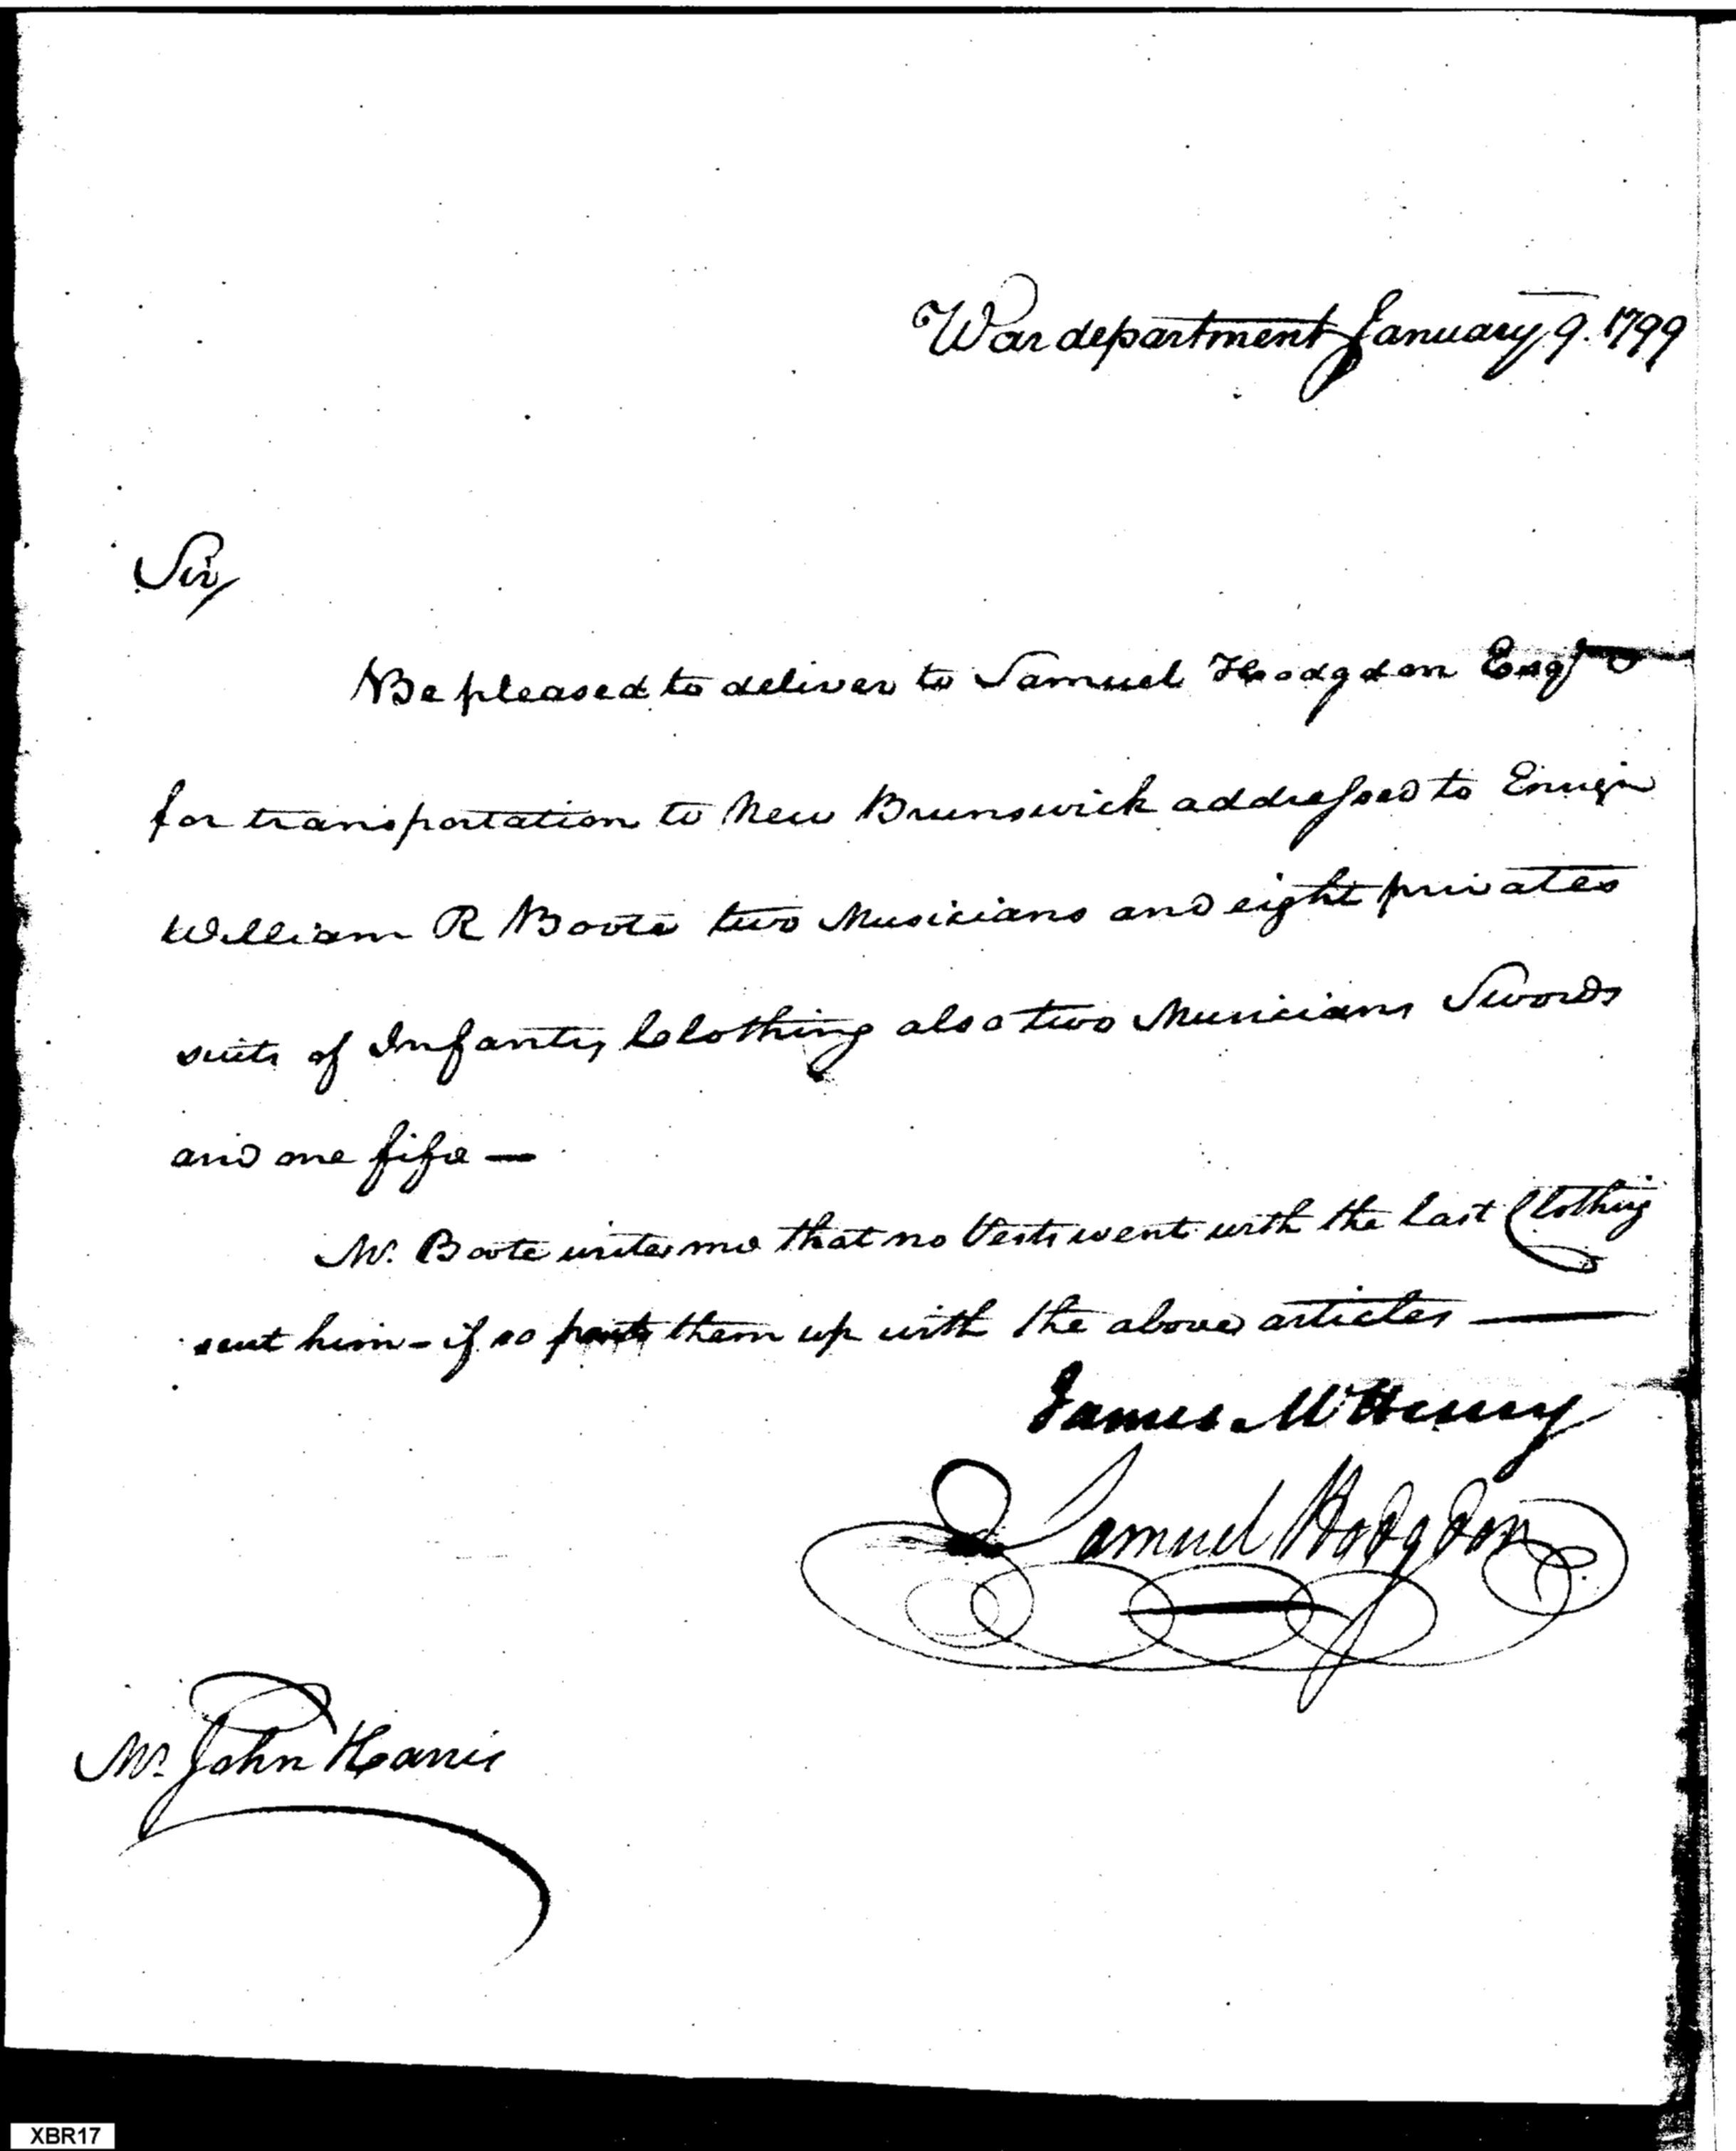 War department January 9. 1799
Sir,
Be pleased to deliver to Samuel Hodgdon Esqr
for transportation to New Brunswick addressed to Ensign
William R Boote two Musicians and eight privates
suits of Infantry Clothing also two Musicians Swords
and one fife —
Mr. Boote writes me that no Vests went with the last Clothing
sent him - if so them up with the above articles —
James McHenry
Samuel Hodgdon
Mr. John Harris
XBR17